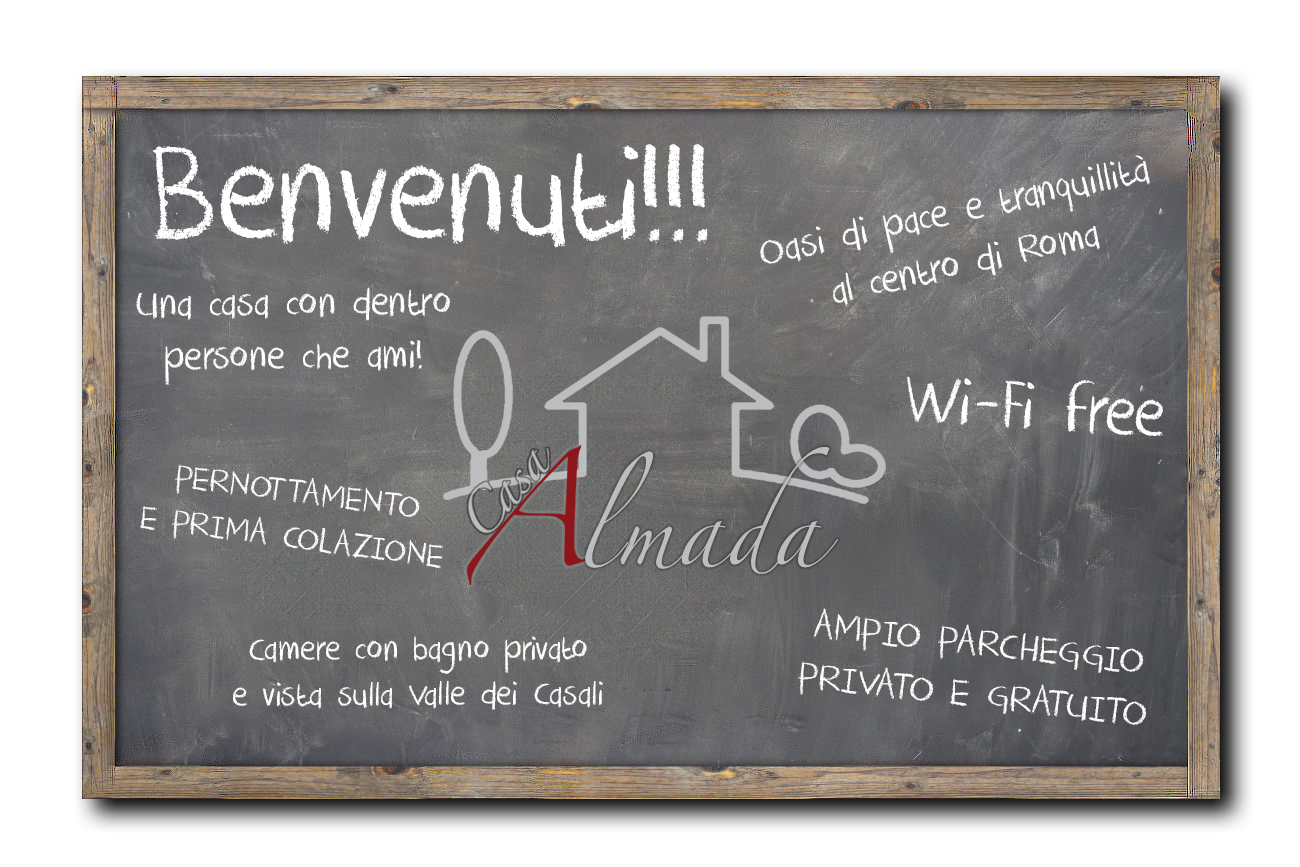 Benvenuti!!!
Oasi di pace e tranquillità
al centro di Roma
Una casa con dentro
persone che ami!
Wi-Fi free
PERNOTTAMENTO
E PRIMA COLAZIONE
Casa
Almada
Camere con bagno privato
e vista sulla Valle dei Casali
AMPIO PARCHEGGIO
PRIVATO E GRATUITO